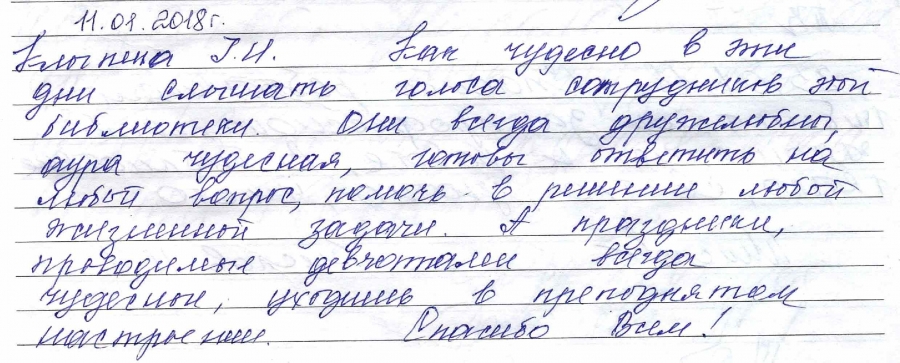 11.01.2018г.
Клыпина Г.И. Как чудесно в эти
дни слышать голоса сотрудников этой
библиотеки. Они всегда дружелюбны,
аура чудесная, готовы ответить на
любой вопрос, помочь в решении любой
жизненной задачи. А праздники,
проводимые девчатами всегда
чудесные, уходишь в преподнятом
настроении. Спасибо Всем!